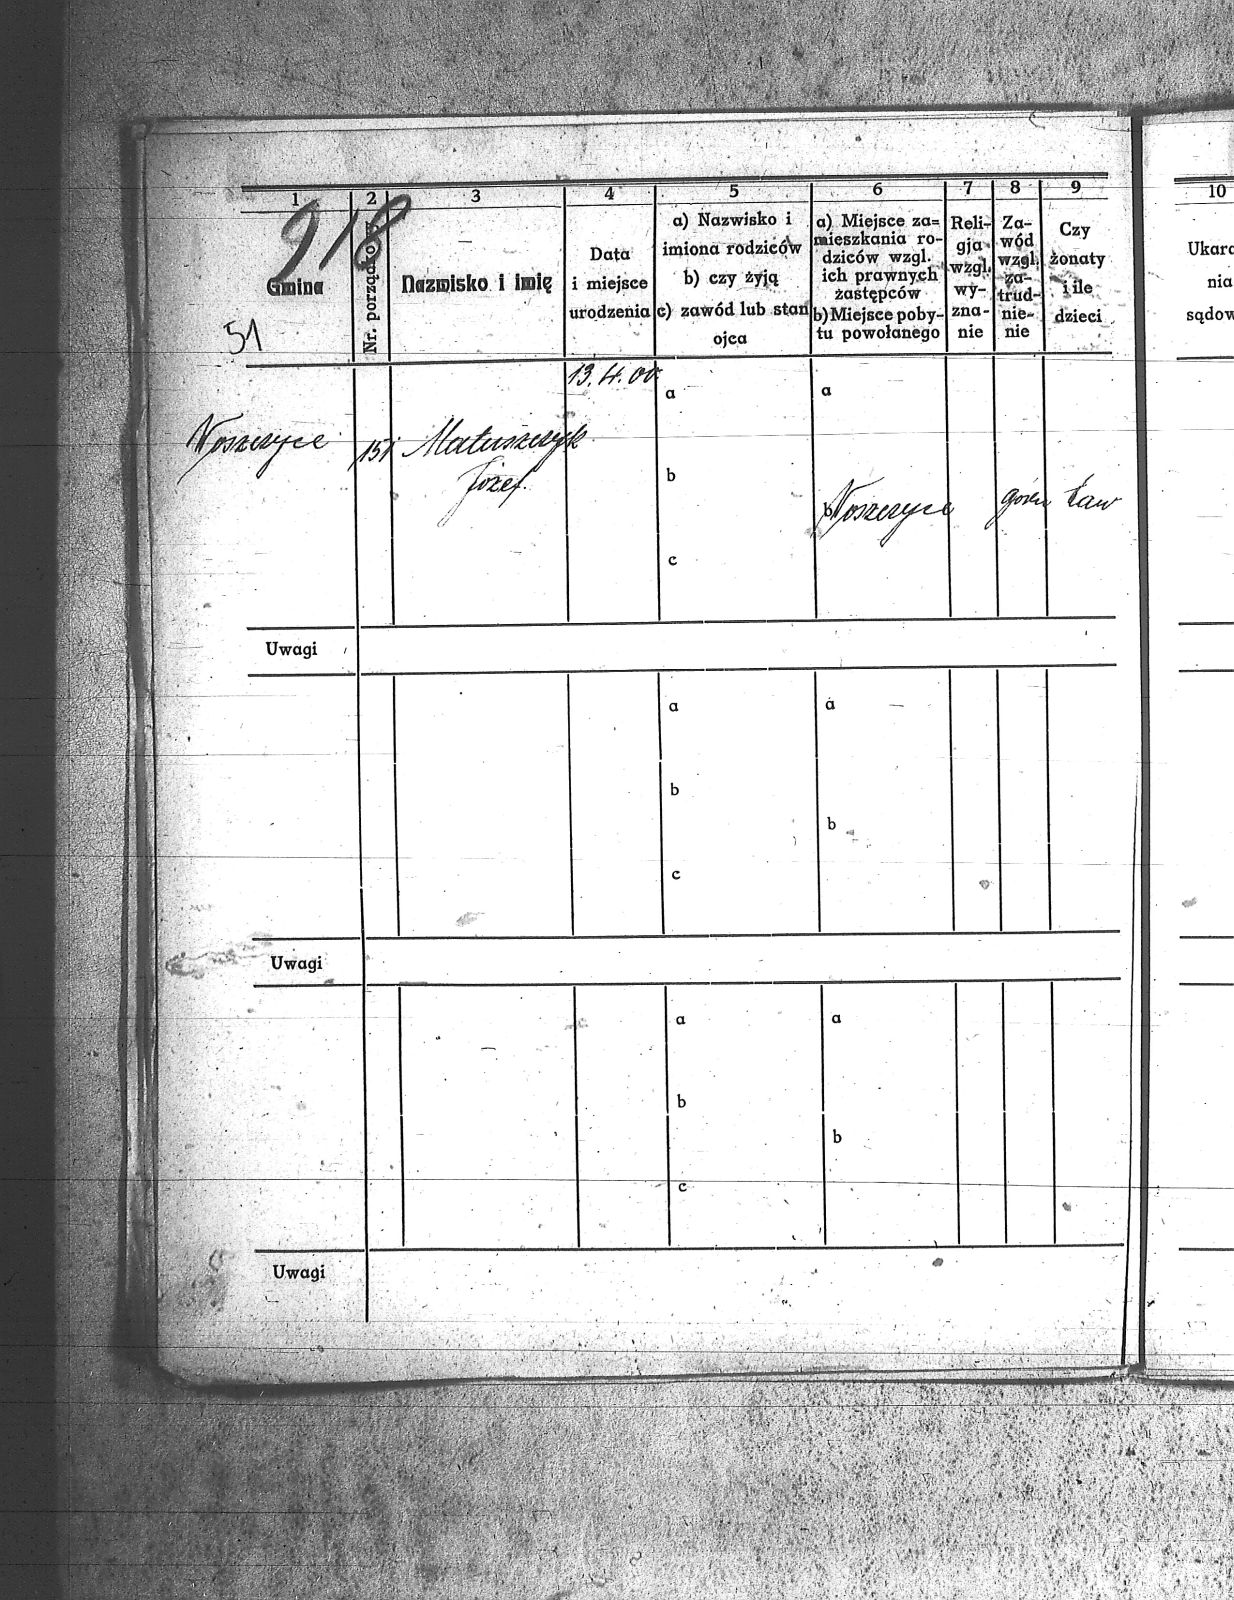 1 2 3 4 5 6 7 8 9 10
918
Gmina
51
Nr. porządkow.
Nazwisko i imię
Data
i miejsce
urodzenia
a) Nazwisko i
imiona rodziców
b) czy żyją
c) zawód lub stan
ojca
a) Miejsce za=
mieszkania ro-
dziców wzgl.
ich prawnych
zastępców
b) Miejsce poby-
tu powołanego
Reli-
gja
wzgl.
wy-
zna-
nie
Za-
wód
wzgl.
za-
trud-
nie-
nie
Czy
żonaty
i ile
dzieci
Ukara
nia
sądow
13.4.00
a a
Woszczyce 151 Matuszczyk
Józef.
b
b Woszczyce górn ław
c
Uwagi
a a
b
b
c
Uwagi
a a
b
b
c
Uwagi